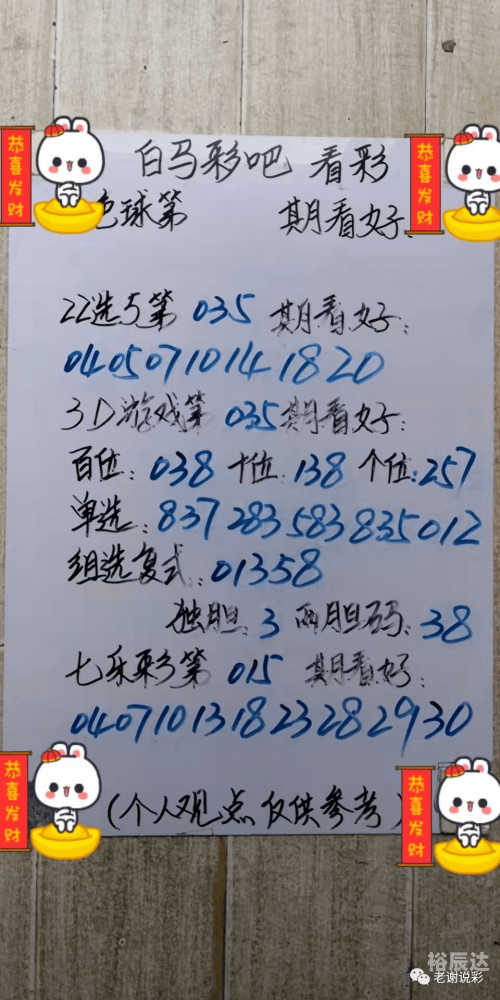 白马彩吧 看彩
恭喜发财
恭喜发财
色球第 期看好:
22选5第 035 期看好:
04050710141820
3D游戏第 035 期看好:
百位:038 十位:138 个位:257
单选:837 283 583 835 012
组选复式:01358
独胆:3 两胆码:38
七乐彩第 015 期看好:
040710131823282930
恭喜发财
恭喜发财
(个人观点仅供参考)
裕辰达
老谢说彩